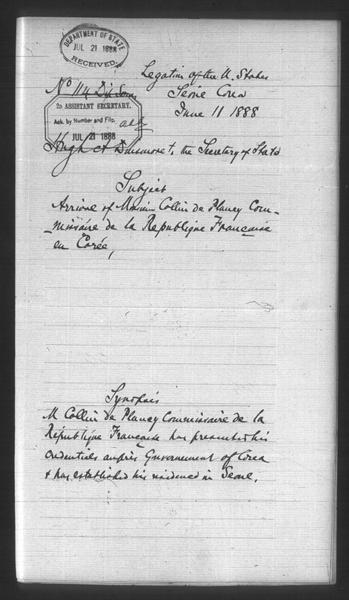 DEPARTMENT OF STATE
JUL 21 1888
RECEIVED.
Legation of the U. States
Nº 114 Dip Series
Séoul Corea
2D ASSISTANT SECRETARY.
Ack. by Number and File,
JUL 21 1888
June 11 1888
Hugh A Dinsmore to the Secretary of State
Subject
Arrival of Monsieur Collin de Plancy Com-
-missaire de la Republique Francaise
en Corée,
Synopsis
M Collin de Plancy Commissaire de la
République Française has presented his
credentials auprès Government of Corea
& has established his residence in Seoul.